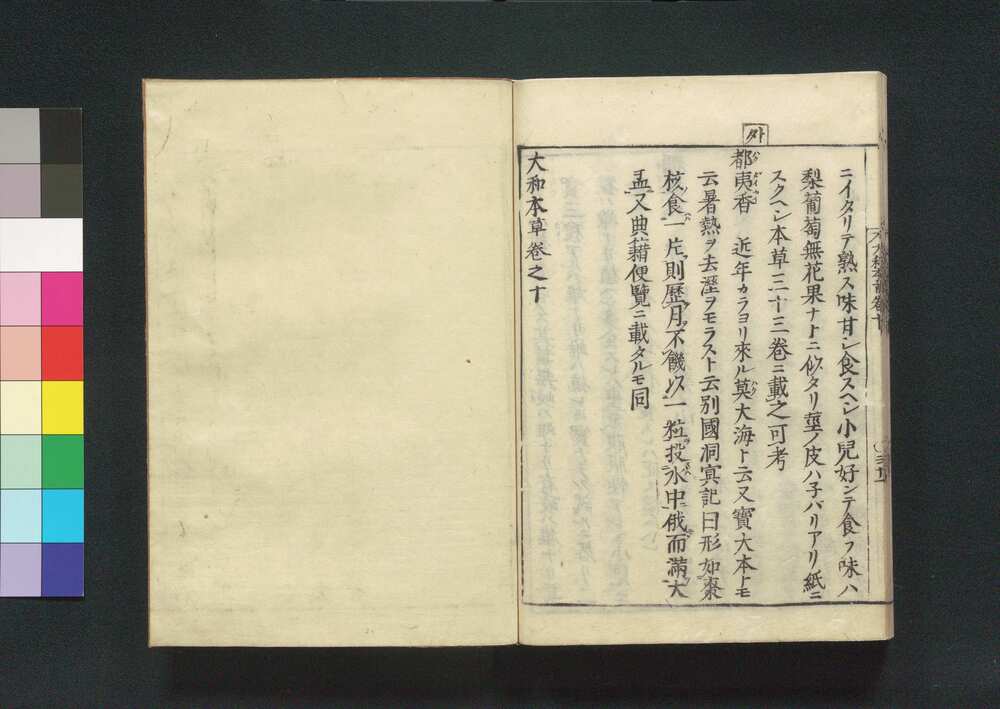 ニイタリテ熟ス味甘シ食スヘシ小兒好ンテ食フ味ハ
梨葡萄無花果ナトニ似タリ莖ノ皮ハ子バリアリ紙ニ
スクヘシ本草三十三卷ニ載之可考
外
都夷香 近年カラヨリ來ル莫大海ト云又寳大本トモ
云暑熱ヲ去溼ヲモラスト云別國洞冥記曰形如棗
核食一片則歷月不饑以一粒投水中俄而滿大
盂又典藉便覽ニ載タルモ同
大和本草卷之十